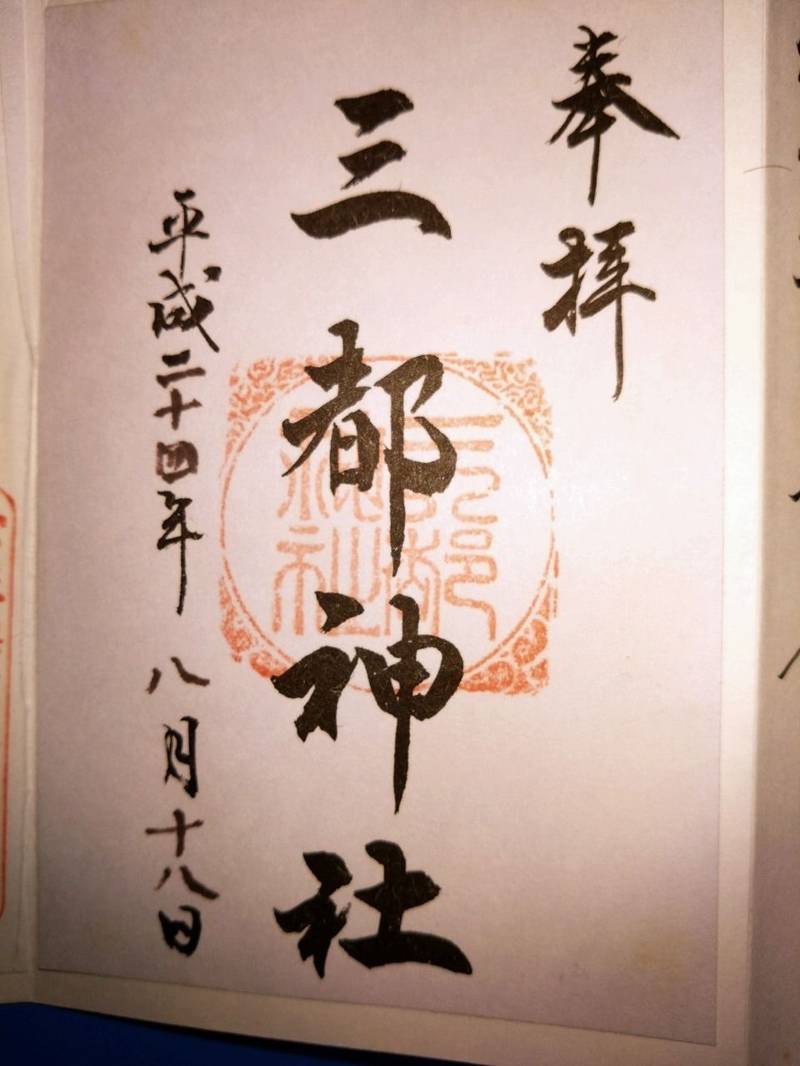 奉拝
三都神社
三都神社
平成二十四年八月十八日